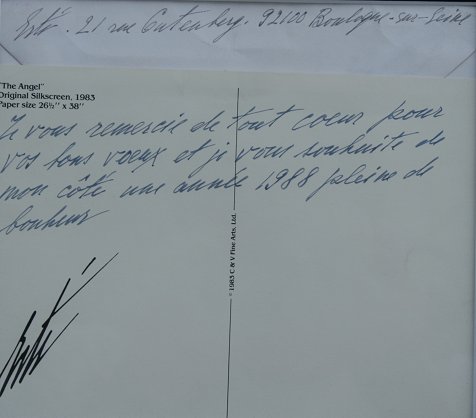 Erté. 21 rue Gutenberg. 92100 Boulogne-sur-Seine
"The Angel"
Original Silkscreen, 1983
Paper size 26½" x 38"
Je vous remercie de tout coeur pour
vos bons voeux et je vous souhaite de
mon côté une année 1988 pleine de
bonheur
Erté
© 1983 C & V Fine Arts, Ltd.